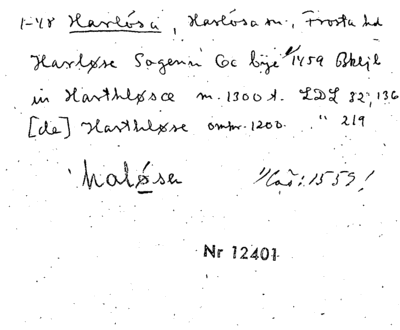 1-48 Harlösa, Harlösa sn., Frosta hd
Harløse Sogenn Oc bije 1/4 1459 Bkljl
in Harthløsæ m. 1300 t. LDL 32, 136
[de] Harthløse omkr. 1200. " 219
Haløse 1559!
Nr 12401